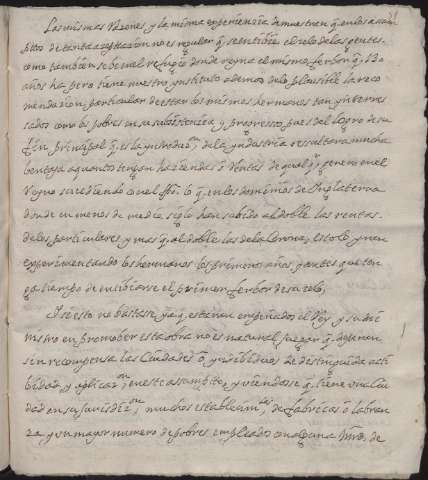 Las mismas razones, y la misma experiencia demuestren q.e en los asum
ptos de tanta no es regular q.e se entibie el zelo de las gentes.
como tambien se be en el refugio donde reyna el mismo fervor q.e 130
años ha pero tiene nuestro ynstituto ademas de lo plausible la reco
mendacion particular de estar los mismos hermanos tan ynteres
sados como los pobres en su subsistencia y progresso, pues del logro de su
fin principal q.e es la de la yndustria resultara mucha
bentaja a quantos tengan haziendas o rentas de qualq.r genero en el
Reyno sucediendo con el lo q.e en los dominios de Ynglaterra
donde en menos de medio siglo han subido al doble las rentas
de los particulares y mas q.e al doble las de la Corona, esto lo yran
experimentando los hermanos los primeros años, y antes que ten
ga tiempo de entibiarse el primer ferbor de su zelo,
Si esto no bastase, ya q.e esten empeñados el Rey, y su mi
nistro en promober esta obra no es natural, juzgar q.e dejaran
sin recompensa las Ciudades o yndibiduos de destinguida acti
bidad, y aplicaz.on en este assumpto, y viendose q.e tiene una Ciu
dad en su jurisdiz.on muchos establecim.tos de fabricas o labran
za, y un mayor numero de pobres empleados con alguna de